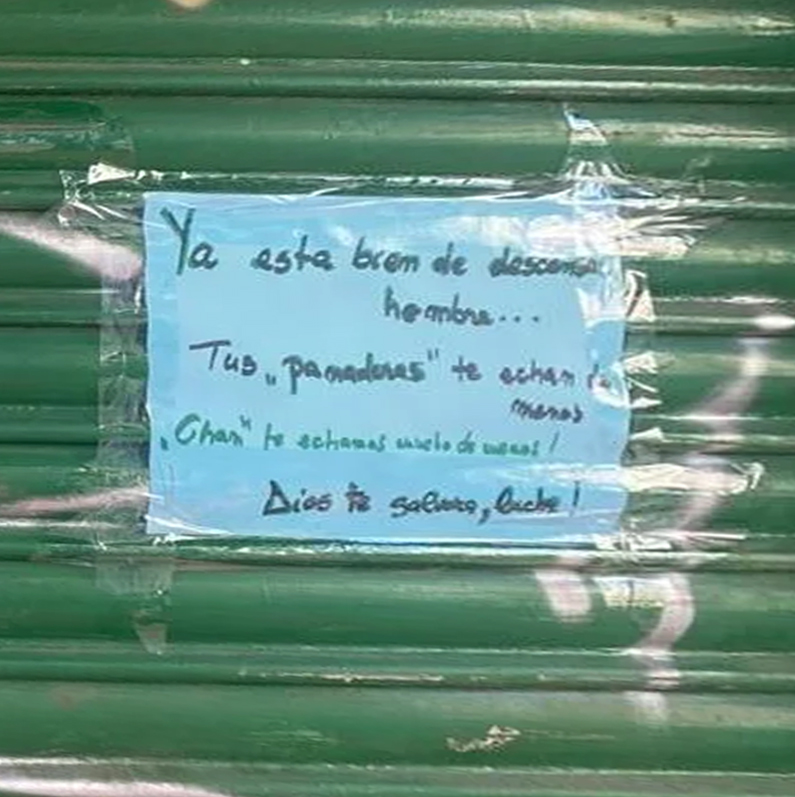 Ya esta bien de descansa
hombre...
Tus „panaderas" te echan de
menos
„Chan" te echamos mucho de menos!
Dios te salvara, lucha!